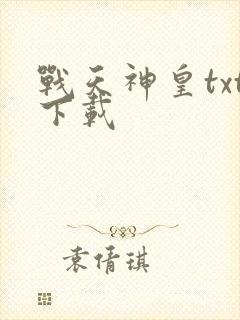 戰天神皇txt
下載
袁倩琪